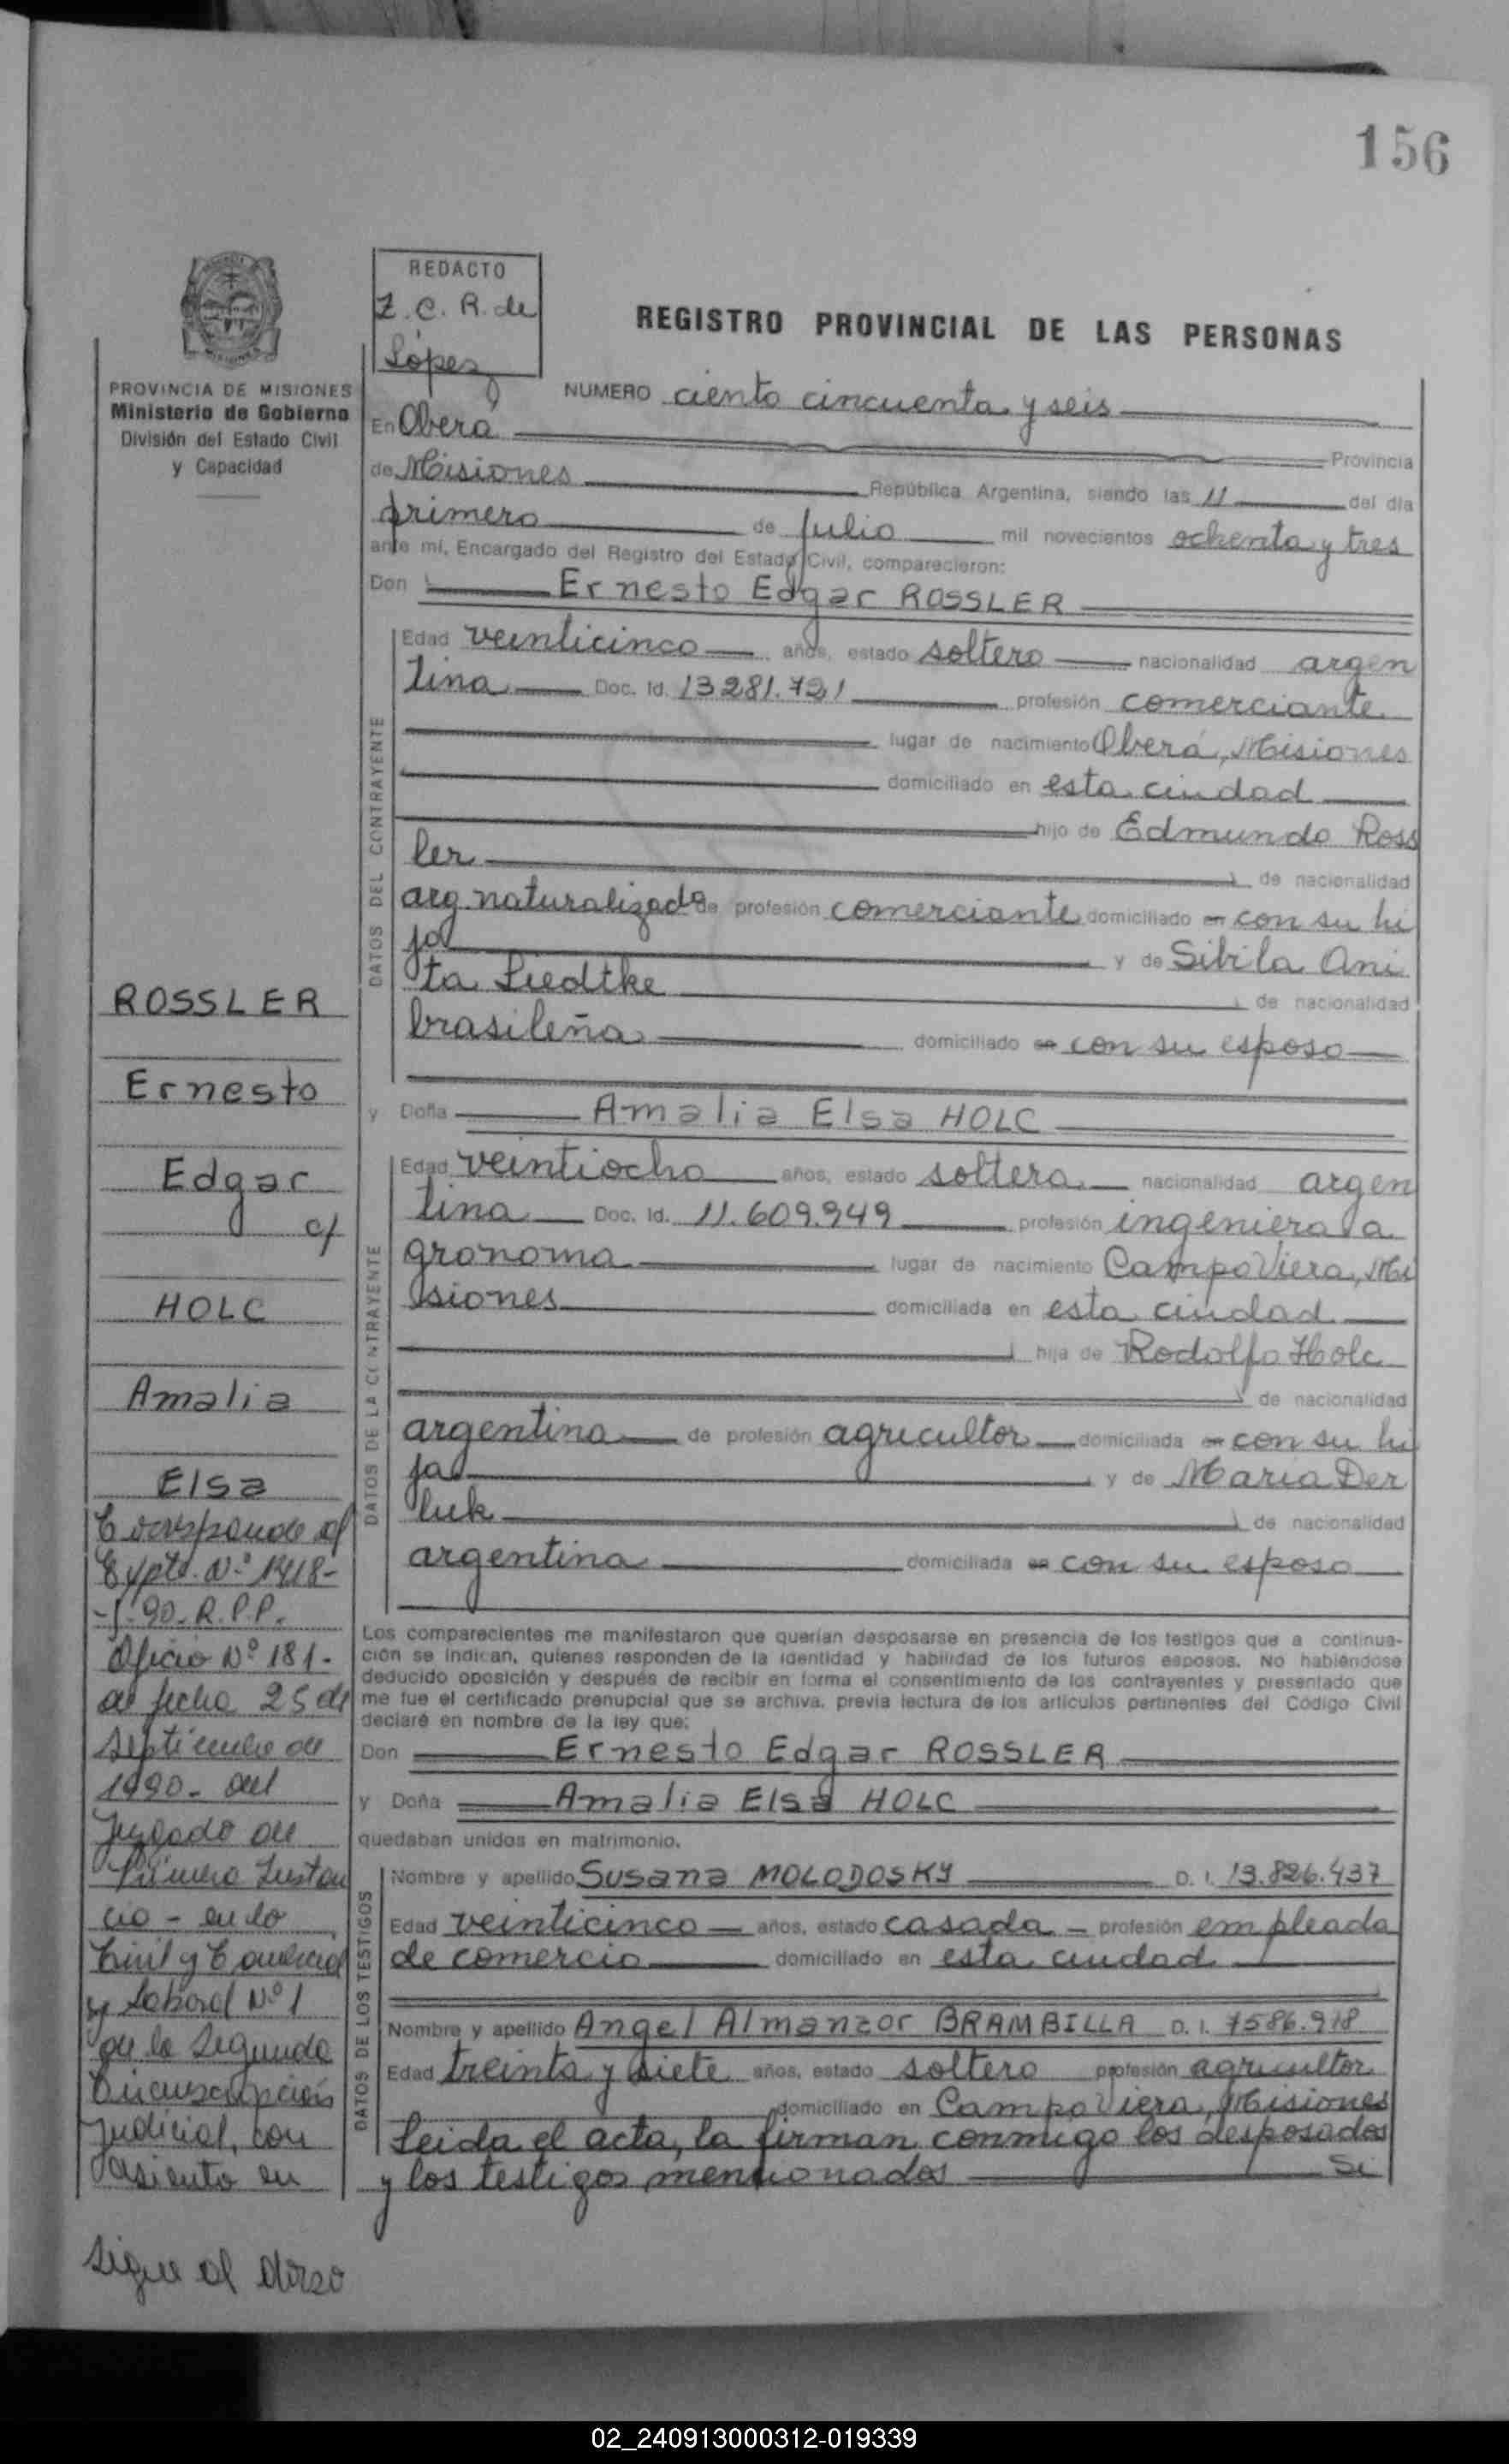 156
REDACTO
Z. C. R. de
López
REGISTRO PROVINCIAL DE LAS PERSONAS
PROVINCIA DE MISIONES
Ministerio de Gobierno
División del Estado Civil
y Capacidad
NUMERO ciento cincuenta y seis
En Oberá Provincia
de Misiones República Argentina, siendo las 11 del día
primero de Julio mil novecientos ochenta y tres
ante mí, Encargado del Registro del Estado Civil, comparecieron:
Don Ernesto Edgar ROSSLER
DATOS DEL CONTRAYENTE
Edad veinticinco años, estado soltero nacionalidad argen
tina Doc. Id. 13281.721 profesión comerciante
lugar de nacimiento Oberá, Misiones
domiciliado en esta ciudad
hijo de Edmundo Ross
ler de nacionalidad
arg. naturalizado de profesión comerciante domiciliado en con su hi
jo y de Sibila Ani
ta Liedtke de nacionalidad
brasileña domiciliado en con su esposo
y Doña Amalia Elsa HOLC
DATOS DE LA CONTRAYENTE
Edad veintiocho años, estado soltera nacionalidad argen
tina Doc. Id. 11.609.949 profesión ingeniera a
gronoma lugar de nacimiento Campo Viera, Mi
siones domiciliada en esta ciudad
hija de Rodolfo Holc
de nacionalidad
argentina de profesión agricultor domiciliada en con su hi
ja y de Maria Der
luk de nacionalidad
argentina domiciliada en con su esposo
Los comparecientes me manifestaron que querían desposarse en presencia de los testigos que a continua-
ción se indican, quienes responden de la identidad y habilidad de los futuros esposos. No habiéndose
deducido oposición y después de recibir en forma el consentimiento de los contrayentes y presentado que
me fue el certificado prenupcial que se archiva, previa lectura de los artículos pertinentes del Código Civil
declaré en nombre de la ley que:
Don Ernesto Edgar ROSSLER
y Doña Amalia Elsa HOLC
quedaban unidos en matrimonio.
DATOS DE LOS TESTIGOS
Nombre y apellido Susana MOLODOSKY D. I. 13.826.437
Edad veinticinco años, estado casada profesión empleada
de comercio domiciliado en esta ciudad
Nombre y apellido Angel Almanzor BRAMBILLA D. I. 7586.918
Edad treinta y siete años, estado soltero profesión agricultor
domiciliado en Campo Viera, Misiones
Leida el acta, la firman conmigo los desposados
y los testigos mencionados Si
ROSSLER
Ernesto
Edgar
c/
HOLC
Amalia
Elsa
Corresponde al
Expte. Nº 1418-
90. R.P.P.
Oficio Nº 181-
de fecha 25 de
septiembre de
1990- del
Juzgado de
Primera Instan
cia - en lo
Civil y Comercial
y Laboral Nº 1
de la Segunda
Circunscripción
Judicial, con
asiento en
Sigue al dorso
02_240913000312-019339